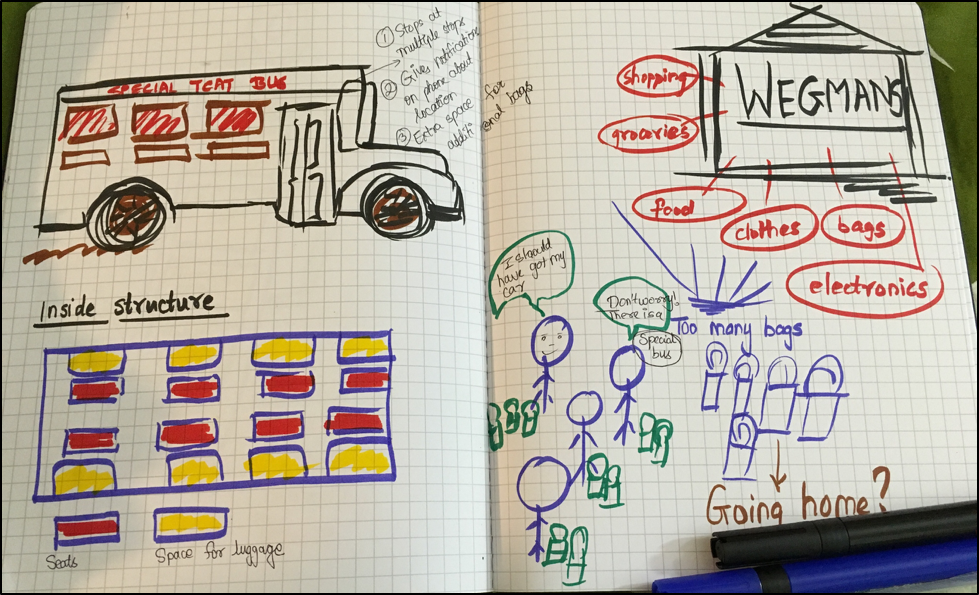 SPECIAL TCAT BUS
① Stops at
multiple stops
② Gives notification
on phone about
location
③ Extra space for
additional bags
Inside structure
Seats
Space for luggage
WEGMANS
shopping
groceries
food
clothes
bags
electronics
I should
have got my
car
Don't worry!
There is a
Special
bus
Too many bags
Going home?